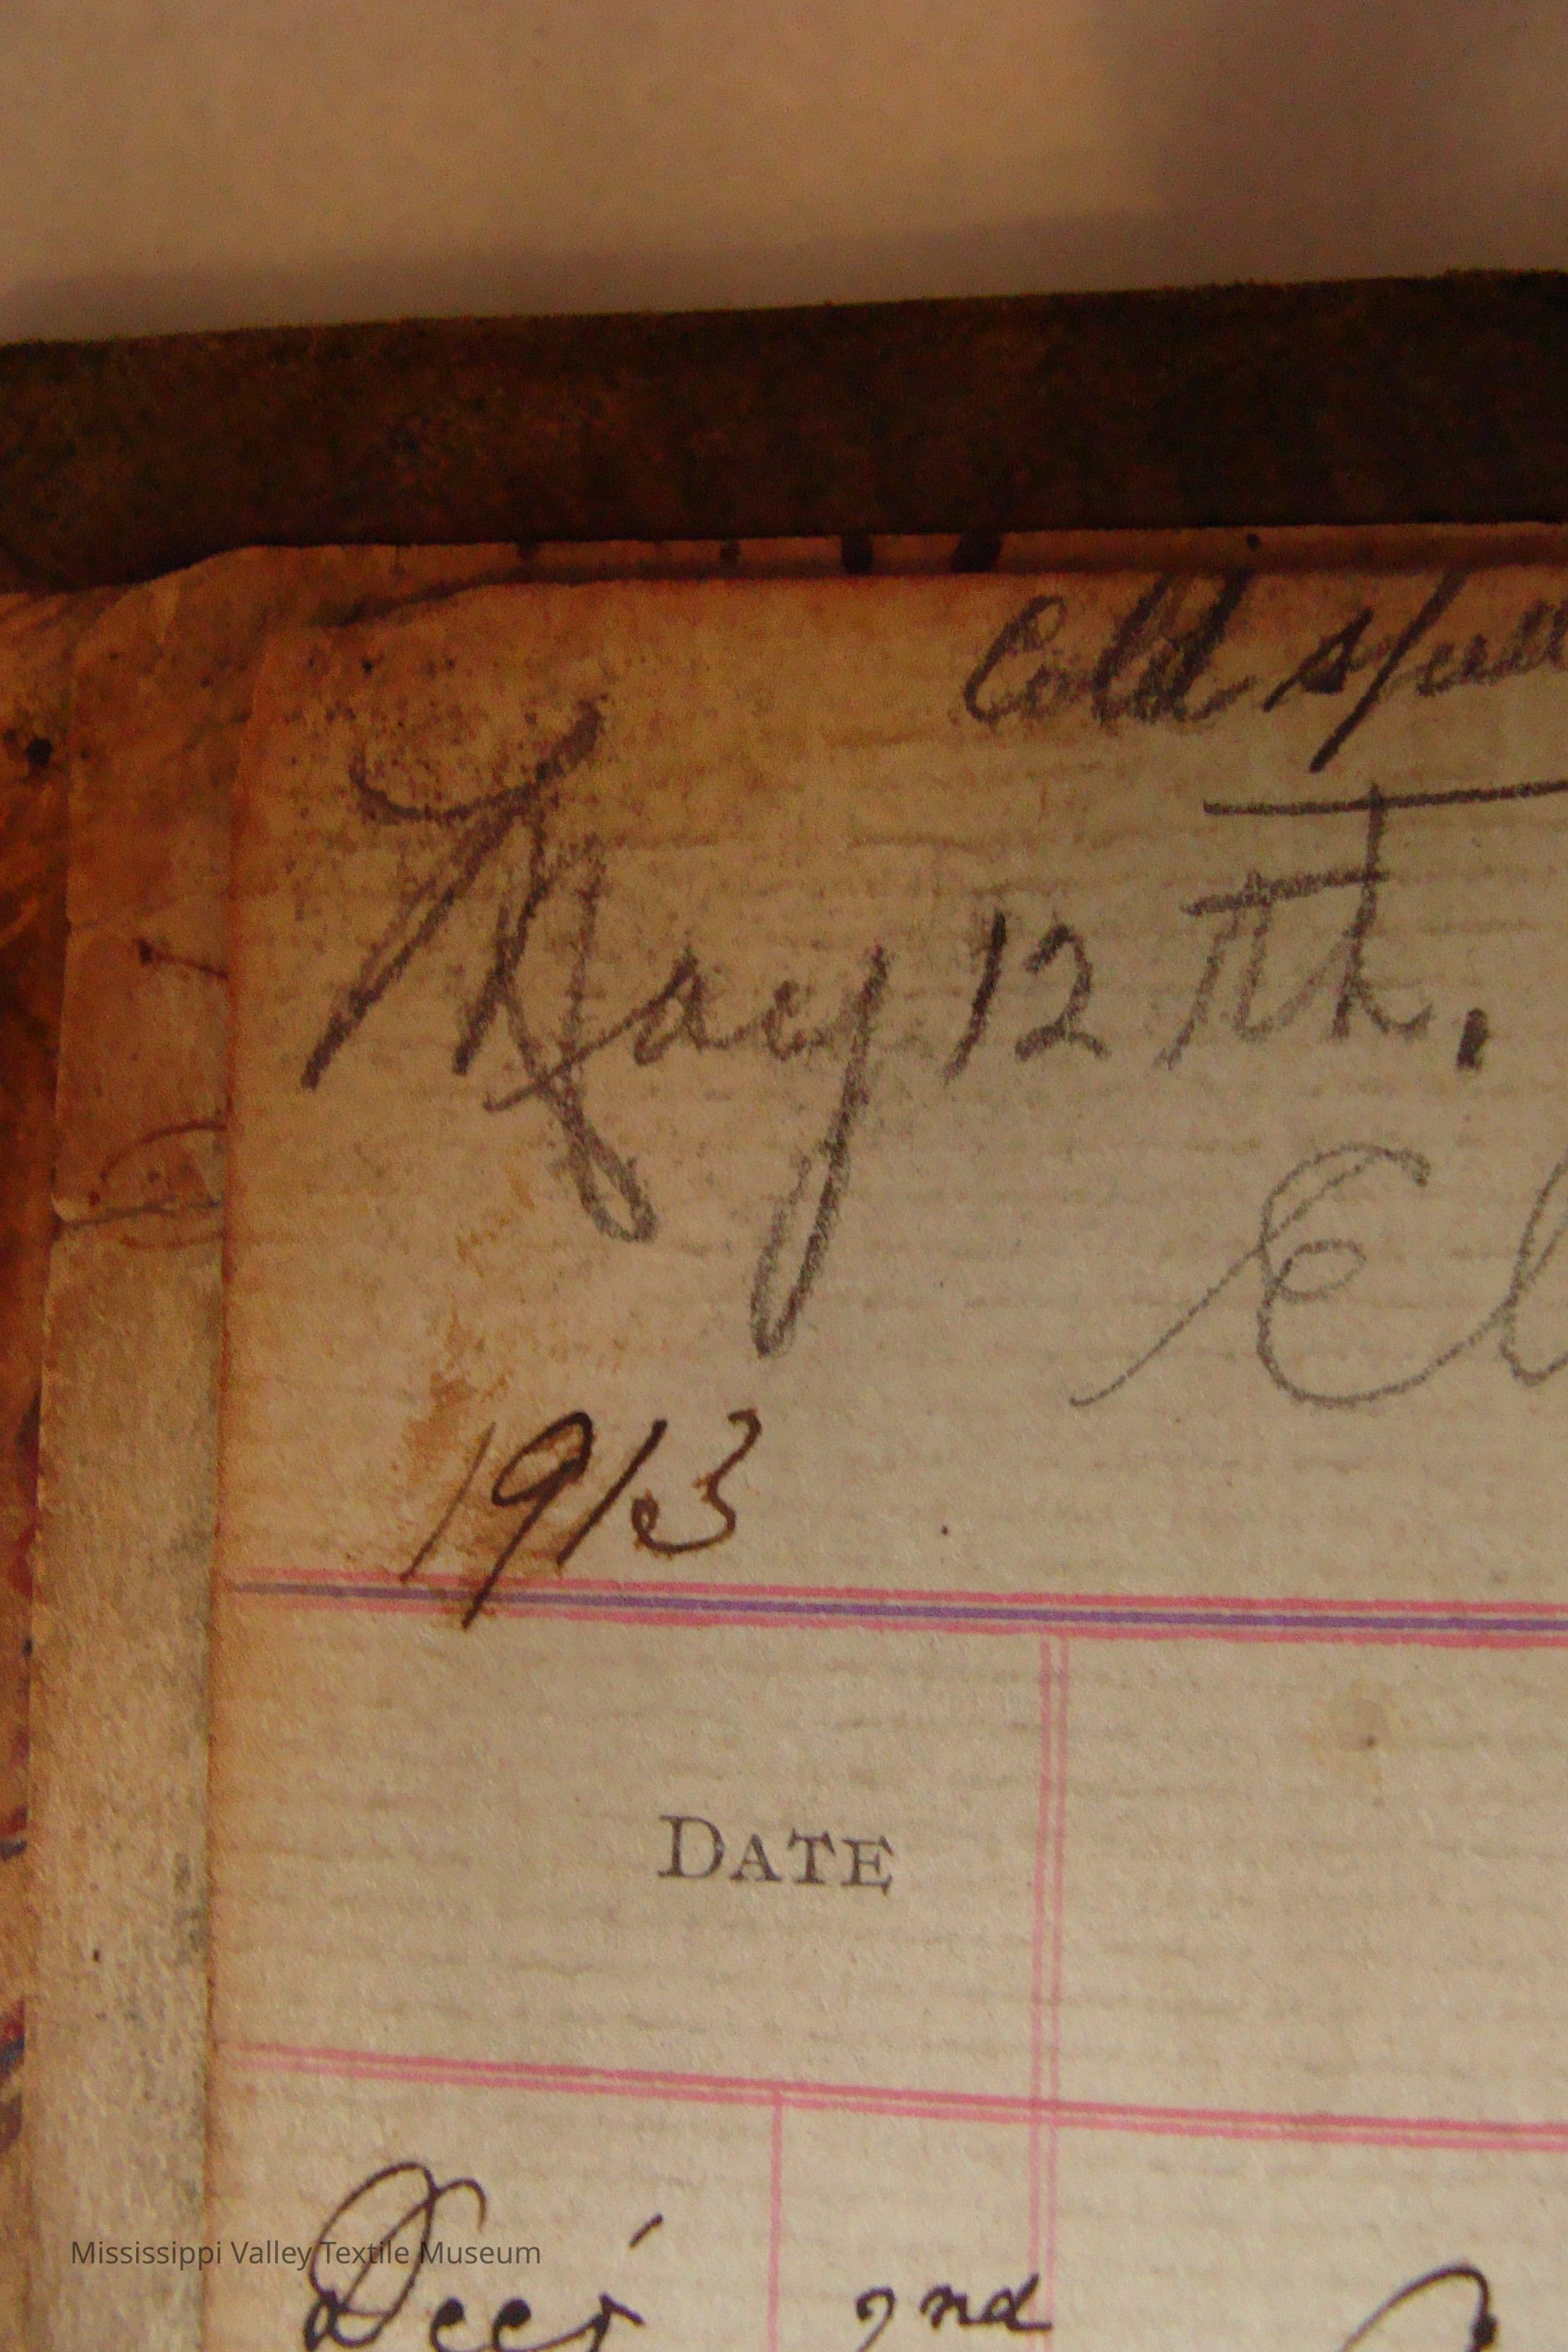 Cold
May 12th.
1913
DATE
2nd
Mississippi Valley Textile Museum